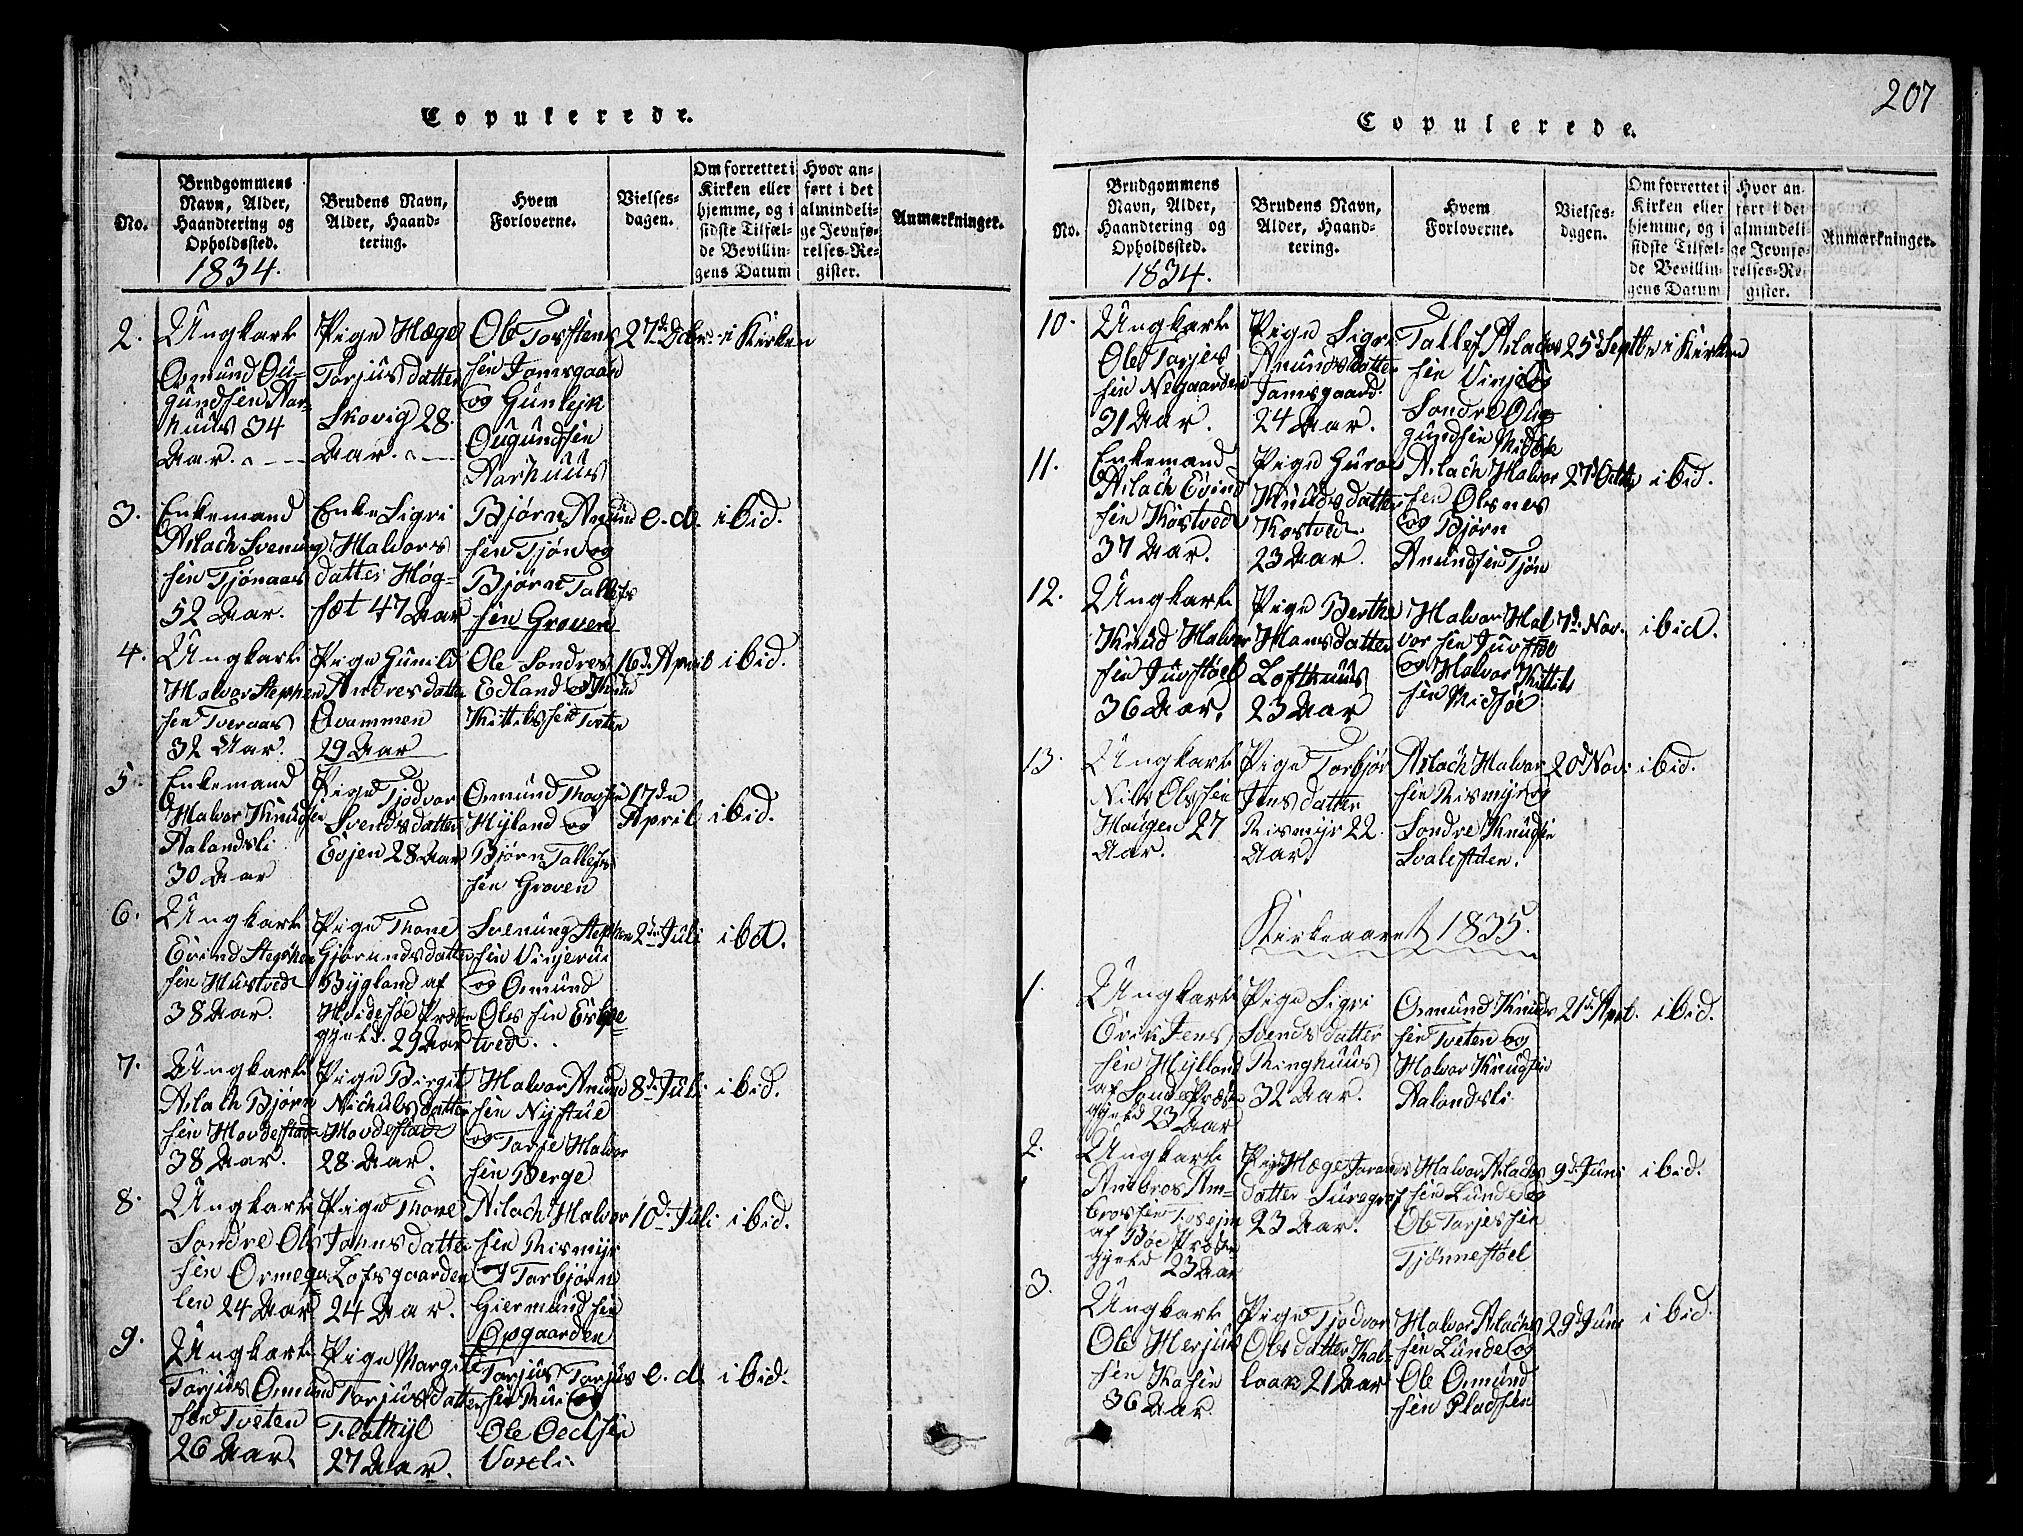 Copulerede.
No.
Brudgommens Navn, Alder, Haandtering og Opholdssted.
1834.
Brudens Navn, Alder, Haandtering.
Hvem Forloverne.
Vielsesdagen.
Om forrettet i Kirken eller hjemme, og i sidste Tilfælde Bevillingens Datum
Hvor anført i det almindelige Jevnførelses-Register.
Anmærkninger.
2.
Ungkarl
Osmund Ou-
gundsen Aar-
huus 34
Aar.
Pige Hæge
Torjus datter
Skovig 28
Aar.
Ole Torstens
sen Jamsgaard
og Gunlejk
Ougundsen
Aarhuus
27de Decbr.
i Kirken
3.
Enkemand
Aslach Svenung
sen Tjønaas
52 Aar.
Enke Sigri
Halvors
datter Høg-
sæt 47 Aar
Bjørn Anund
sen Tjøn og
Bjørn Tallefs
sen Groven
e. d.
ibid.
4.
Ungkarl
Halvor Stephen
sen Tveraas
32 Aar.
Pige Gunild
Andres datter
Qvammen
29 Aar
Ole Sondres
Edland og Knud
Kittilssen Tveten
16de April
ibid.
5.
Enkemand
Halvor Knudsen
Aalandsli
30 Aar
Pige Tjodvor
Svends datter
Evjen 28 Aar
Osmund Thorsen
Hyland og
Bjørn Tallefs
sen Groven
17de
April
ibid.
6.
Ungkarl
Evind Stephen
sen Hustvedt
38 Aar.
Pige Thone
Gjørunds datter
Bygland af
Hvidesøe Præste
gjeld. 29 Aar
Svenung Stephen
sen Vinjerui
og Osmund
Ols sen Espe
tvedt.
2de Juli
ibd.
7.
Ungkarl
Aslach Bjørn
sen Hovdestad
38 Aar.
Pige Birgit
Nichuls datter
Hovdestad
28 Aar.
Halvor Anund
sen Nystue
og Torje Halvor
sen Berge
8de Juli
ibid.
8.
Ungkarl
Sondre Ols
sen Ormega-
len 24 Aar
Pige Thone
Jamsdatter
Lofsgaarden
24 Aar.
Aslach Halvor
sen Rismyr
og Torbjørn
Giermundsen
Opgaarden
10de Juli
ibid.
9.
Ungkarl
Torjus Osmund
sen Tveten
26 Aar.
Pige Margit
Torjus datter
Flathyl
27 Aar.
Torjus Torjus
sen Rui og
Ole Oechsen
Voxli.
e. d.
ibid.
207
Copulerede.
No.
Brudgommens Navn, Alder, Haandtering og Opholdssted.
1834.
Brudens Navn, Alder, Haandtering.
Hvem Forloverne.
Vielsesdagen.
Om forrettet i Kirken eller hjemme, og i sidste Tilfælde Bevillingens Datum
Hvor anført i det almindelige Jevnførelses-Register.
Anmærkninger.
10.
Ungkarl
Ole Torjes
sen Negaarden
31 Aar.
Pige Sigri
Anunds datter
Jamsgaard.
24 Aar.
Tallef Aslachs
sen Vinje og
Sondre Oug
gundsen Midbøe
25de Septbr
i Kirken
11.
Enkemand
Aslach Evind
sen Kostvedt
37 Aar.
Pige Guro
Knuds datter
Kostvedt
23 Aar.
Aslach Halvor
sen Olsnes
og Bjørn
Anundsen Tjøn
27de Octbr
ibid.
12.
Ungkarl
Knud Halvor
sen Juvstøel
36 Aar.
Pige Berthe
Hans datter
Lofthuus
23 Aar
Halvor Hal
vor sen Juvstøe
og Halvor Kittils
sen Midsøe
7de Nov.
ibid.
13.
Ungkarl
Nils Olssen
Haugen 27
Aar.
Pige Torbjør
Jens datter
Rismyr 22
Aar.
Aslach Halvor
sen Rismyr og
Sondre Knudse
Svalestuen.
20de Nov.
ibid.
Kirkeaaret 1835.
1.
Ungkarl
Even Jens
sen Hylland
af Sande Præste
gjeld 23 Aar
Pige Sigri
Svends datter
Ringhuus
32 Aar.
Osmund Knuds
sen Tveten og
Halvor Knudsen
Aalandsli
21de April.
ibid.
2.
Ungkarl
Ambros Am-
brossen
af Bøe Præste
gjeld 23 Aar
Pige Hæge
datter
23 Aar.
Halvor Aslachs
sen Lunde og
Ole Torjessen
Tjønnestøel
9de Juni
ibid.
3.
Ungkarl
Ole Herjus
sen Kasin
36 Aar.
Pige Tjodvor
Ols datter Kal-
laak 21 Aar
Halvor Aslachs
sen Lunde og
Ole Osmund
sen Pladsen
29de Juni
ibid.